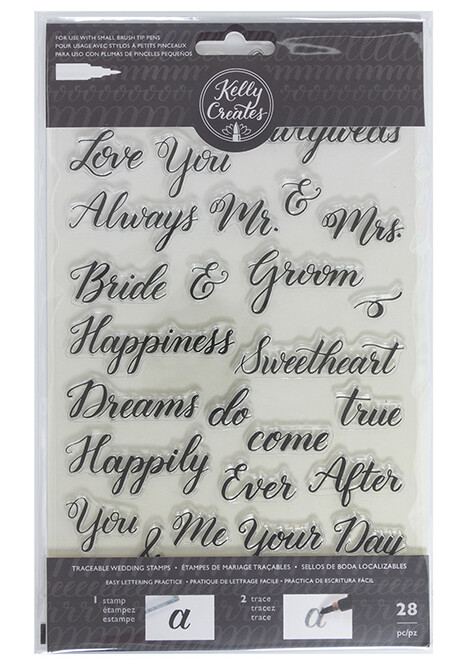 FOR USE WITH SMALL BRUSH TIP PENS
POUR USAGE AVEC STYLOS À PETITS PINCEAUX
PARA USO CON PLUMAS DE PINCELES PEQUEÑOS
Kelly
Creates
Love You
Always Mr. & Mrs.
Bride & Groom
Happiness Sweetheart
Dreams do come true
Happily Ever After
You & Me Your Day
TRACEABLE WEDDING STAMPS • ÉTAMPES DE MARIAGE TRAÇABLES • SELLOS DE BODA LOCALIZABLES
EASY LETTERING PRACTICE • PRATIQUE DE LETTRAGE FACILE • PRACTICA DE ESCRITURA FÁCIL
1 stamp
étampez
estampe
a
2 trace
tracez
trace
a
28
pc/pz